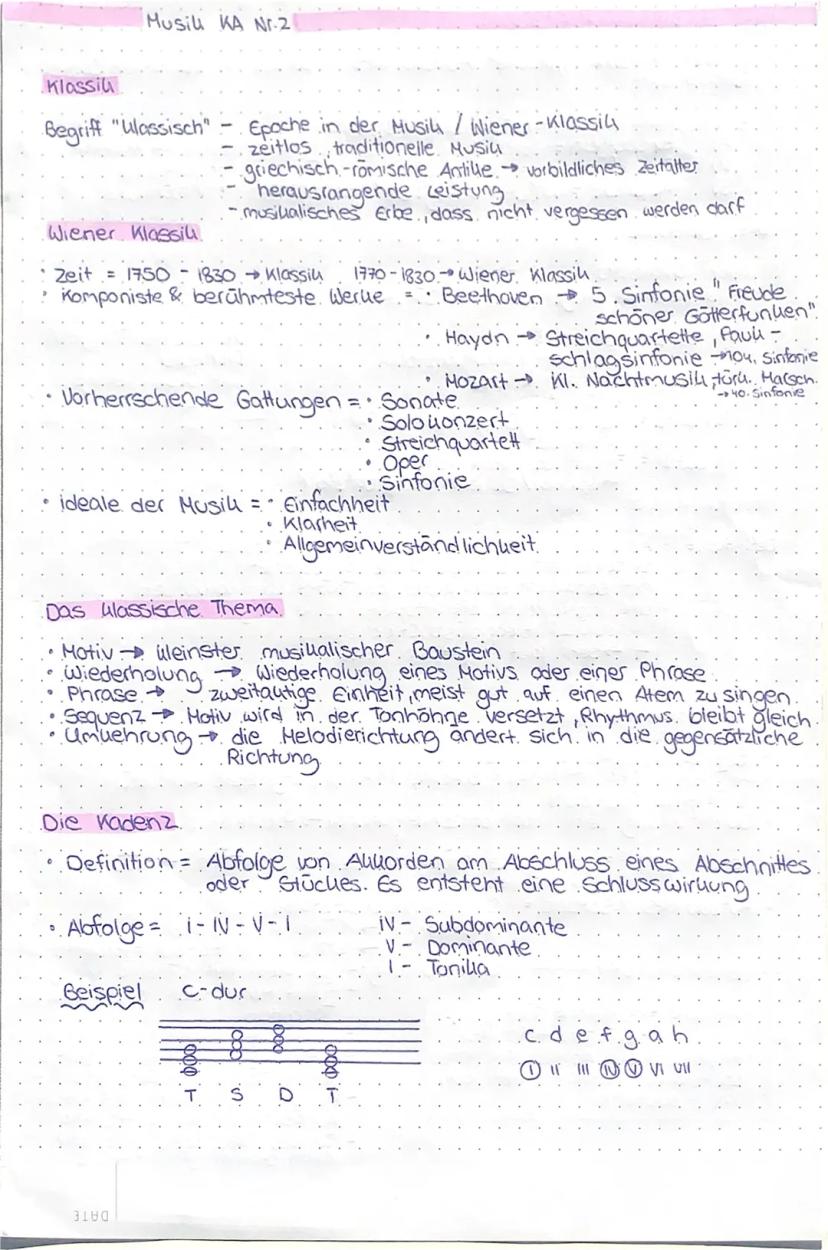 Musik KA Nr.2
Klassik
Begriff "klassisch" - Epoche in der Musik / Wiener-Klassik
- zeitlos, traditionelle Musik
- griechisch-römische Antike → vorbildliches Zeitalter
- herausrangende Leistung
- musikalisches Erbe, dass nicht vergessen werden darf
Wiener Klassik
· Zeit = 1750 - 1830 → Klassik 1770-1830 → Wiener Klassik
· Komponiste & berühmteste Werke = · Beethoven → 5. Sinfonie "Freude
schöner Götterfunken"
· Haydn → Streichquartette, Pauk-
schlagsinfonie → 104. Sinfonie
· Mozart → Kl. Nachtmusik, türk. Marsch
→ 40. Sinfonie
· Vorherrschende Gattungen = · Sonate
· Solokonzert
· Streichquartett
· Oper
· Sinfonie
· ideale der Musik = · Einfachheit
· Klarheit
· Allgemeinverständlichkeit
Das klassische Thema
· Motiv → kleinster musikalischer Baustein
· Wiederholung → Wiederholung eines Motivs oder einer Phrase
· Phrase → zweitaktige Einheit, meist gut auf einen Atem zu singen
· Sequenz → Motiv wird in der Tonhöhe versetzt, Rhythmus bleibt gleich
· Umkehrung → die Melodierichtung ändert sich in die gegensätzliche
Richtung
Die Kadenz
· Definition = Abfolge von Akkorden am Abschluss eines Abschnittes
oder Stückes. Es entsteht eine Schlusswirkung
· Abfolge = I - IV - V - I IV - Subdominante
V - Dominante
I - Tonika
Beispiel C-dur
c d e f g a h
I II III IV V VI VII
T S D T
DATE